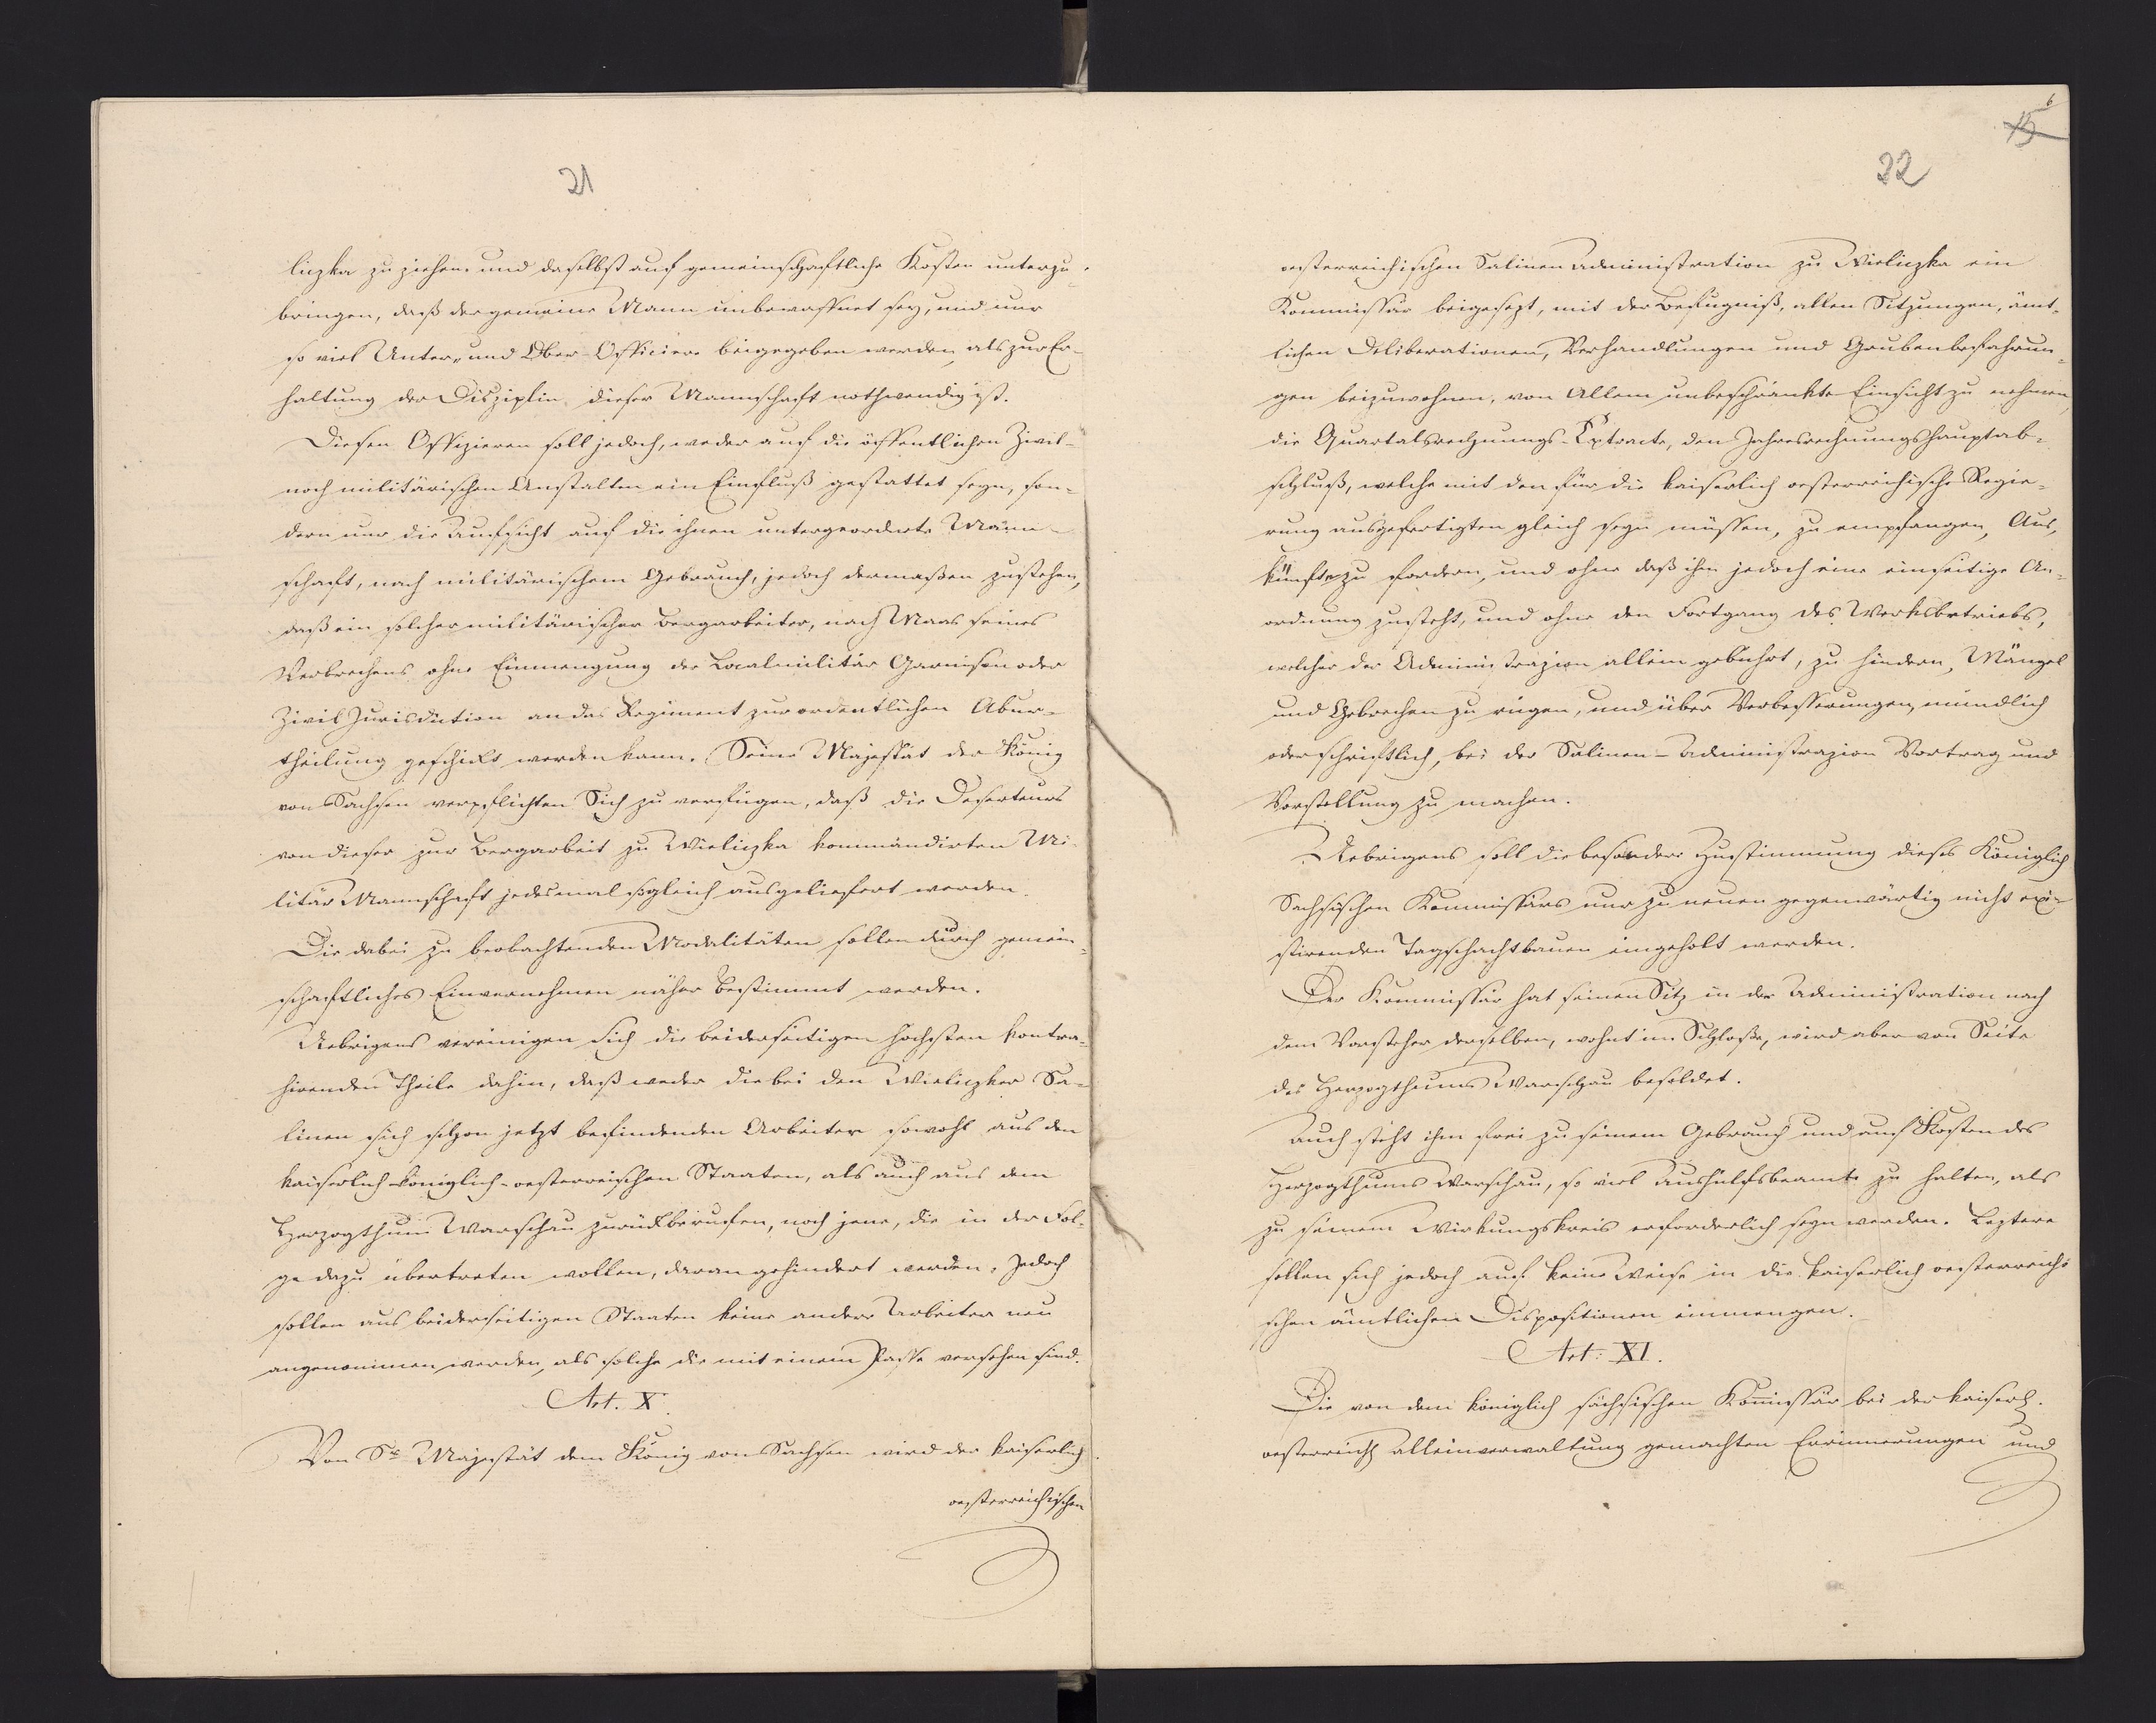 21
liczka zu ziehen und daselbst auf gemeinschaftliche Kosten unterzu-
bringen, daß der gemeine Mann unbewaffnet sey, und nur
so viel Unter- und Ober-Officiere beigegeben werden, als zur Er-
haltung der Disziplin dieser Mannschaft nothwendig ist.
Diesen Offizieren soll jedoch, weder auf die öffentlichen Zivil-
noch militärischen Anstalten ein Einfluß gestattet seyn, son-
dern nur die Aufsicht auf die ihnen untergeordnete Mann-
schaft, nach militärischem Gebrauch, jedoch dermaßen zustehen,
daß ein solcher militärischer Bergarbeiter, nach Maas seines
Verbrechens ohne Einmengung der Localmilitär Garnison oder
Zivil Jurisdiction an das Regiment zur ordentlichen Abur-
theilung geschickt werden kann. Seine Majestät der König
von Sachsen verpflichten Sich zu verfügen, daß die Deserteurs
von dieser zur Bergarbeit zu Wieliczka kommandirten Mi-
litär Mannschaft jedesmal sogleich ausgeliefert werden.
Die dabei zu beobachtenden Modalitäten sollen durch gemein-
schaftliches Einvernehmen näher bestimmt werden.
Uebrigens vereinigen sich die beiderseitigen höchsten kontra-
hirenden Theile dahin, daß weder die bei den Wieliczker Sa-
linen sich schon jetzt befindenden Arbeiter sowohl aus den
kaiserlich-königlich-oesterreischen Staaten, als auch aus dem
Herzogthum Warschau zurückberufen, noch jene, die in der Fol-
ge dazu übertreten wollen, daran gehindert werden. Jedoch
sollen aus beiderseitigen Staaten keine andere Arbeiter neu
angenommen werden, als solche die mit einem Passe versehen sind.
Art. X.
Von Sr. Majestät dem König von Sachsen wird der kaiserlich
oesterreichischen
6
22
oesterreichischen Salinen Administration zu Wieliczka ein
Kommissär beigesezt, mit der Befugniß, allen Sitzungen, ämt-
lichen Deliberationen, Verhandlungen und Grubenbefahrun-
gen beizuwohnen, von Allem unbeschränkte Einsicht zu nehmen,
die Quartalsrechnungs-Extracte, den Jahresrechnungshauptab-
schluß, welche mit den für die kaiserlich oesterreichische Regie-
rung ausgefertigten gleich seyn müssen, zu empfangen, Aus-
künfte zu fordern, und ohne daß ihm jedoch eine einseitige An-
ordnung zusteht, und ohne den Fortgang des Werksbetriebs,
welcher der Administrazion allein gebührt, zu hindern, Mängel
und Gebrechen zu rügen, und über Verbesserungen, mündlich
oder schriftlich, bei der Salinen-Administrazion Vortrag und
Vorstellung zu machen.
Uebrigens soll die besondere Zustimmung dieses Königlich
Sachsischen Kommissärs nur zu neuen gegenwärtig nicht exi-
stirenden Tagschachtbauen eingeholt werden.
Der Kommissär hat seinen Sitz in der Administration nach
dem Vorsteher derselben, wohnt im Schloße, wird aber von Seite
des Herzogthums Warschau besoldet.
Auch steht ihm frei zu seinem Gebrauch und auf Kosten des
Herzogthums Warschau, so viel Aushülfsbeamte zu halten, als
zu seinem Wirkungskreis erforderlich seyn werden. Leztere
sollen sich jedoch auf keine Weise in die kaiserlich oesterreichi-
schen ämtlichen Dispositionen einmengen.
Art: XI.
Die von dem königlich sächsischen Kommissär bei der kaiserl.
oesterreich. Alleinverwaltung gemachten Erinnerungen und